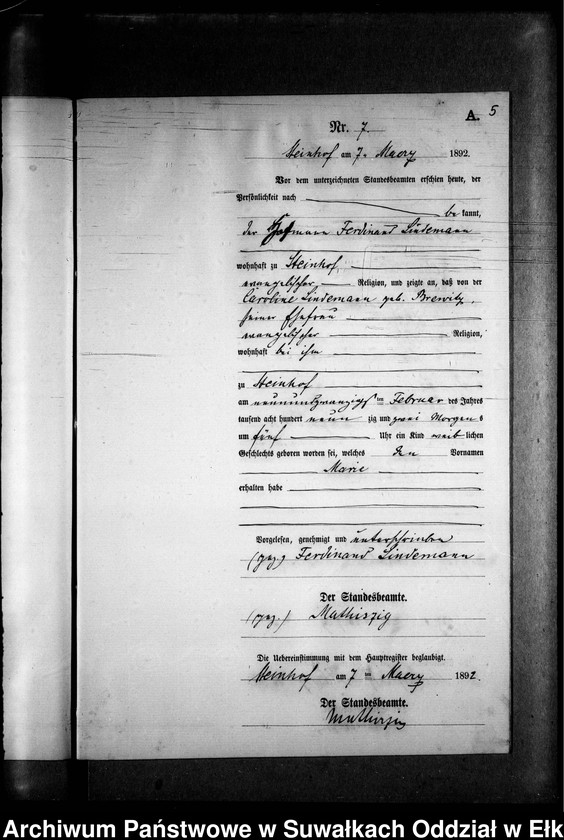 A. 5
Nr. 7.
Steinhof am 7. Maerz 1892.
Vor dem unterzeichneten Standesbeamten erschien heute, der
Persönlichkeit nach
be kannt,
der Losmann Ferdinand Lindemann
wohnhaft zu Steinhof,
evangelischer Religion, und zeigte an, daß von der
Caroline Lindemann geb. Brewitz,
seiner Ehefrau
evangelischer Religion,
wohnhaft bei ihm
zu Steinhof
am neunundzwanzigsten Februar des Jahres
tausend acht hundert neun zig und zwei Morgens
um fünf Uhr ein Kind weib lichen
Geschlechts geboren worden sei, welches den Vornamen
Marie
erhalten habe
Vorgelesen, genehmigt und unterschrieben
(gez.) Ferdinand Lindemann
Der Standesbeamte.
(gez.) Mathiszig
Die Uebereinstimmung mit dem Hauptregister beglaubigt.
Steinhof am 7 ten Maerz 1892.
Der Standesbeamte.
Mathiszig
Archiwum Państwowe w Suwałkach Oddział w Ełk